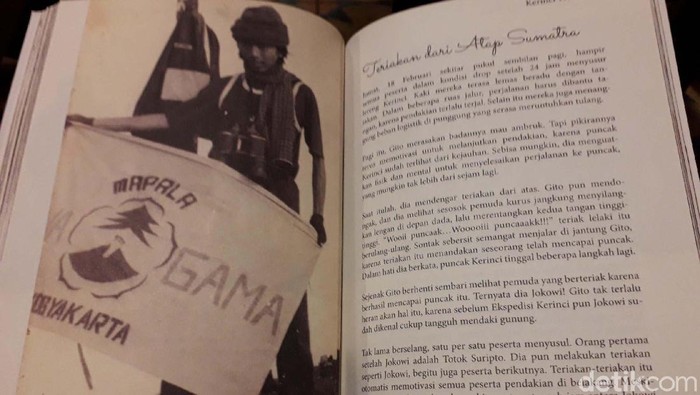 MAPALA
GAMA
YOGYAKARTA
Kerinci
Teriakan dari Atap Sumatra
18 Februari sekitar pukul sembilan pagi, hampir
semua peserta dalam kondisi drop setelah 24 jam menyusur
Kerinci. Kaki mereka terasa lemas beradu dengan tan-
Dalam beberapa ruas jalur, perjalanan harus dibantu
karena pendakian terlalu terjal. Selain itu mereka juga menang-
gung beban logistik di punggung yang serasa meruntuhkan tulang.
Pagi itu, Gito merasakan badannya mau ambruk. Tapi pikirannya
terus memotivasi untuk melanjutkan pendakian, karena puncak
Kerinci sudah terlihat dari kejauhan. Sebisa mungkin, dia menguat-
kan fisik dan mental untuk menyelesaikan perjalanan ke puncak,
yang mungkin tak lebih dari sejam lagi.
Saat itulah, dia mendengar teriakan dari atas. Gito pun mendo-
ngak, dan dia melihat sesosok pemuda kurus jangkung menyilang-
kan lengan di depan dada, lalu merentangkan kedua tangan tinggi-
tinggi. "Woooi puncaak...Wooooiiii puncaaakk!!!" teriak lelaki itu
berulang-ulang. Sontak sebersit semangat menjalar di jantung Gito,
karena teriakan itu menandakan seseorang telah mencapai puncak.
Dalam hati dia berkata, puncak Kerinci tinggal beberapa langkah lagi.
Sejenak Gito berhenti sembari melihat pemuda yang berteriak karena
berhasil mencapai puncak itu. Ternyata dia Jokowi! Gito tak terlalu
heran akan hal itu, karena sebelum Ekspedisi Kerinci pun Jokowi su-
dah dikenal cukup tangguh mendaki gunung.
Tak lama berselang, satu per satu peserta menyusul. Orang pertama
setelah Jokowi adalah Totok Suripto. Dia pun melakukan teriakan
seperti Jokowi, begitu juga peserta berikutnya. Teriakan-teriakan itu
otomatis memotivasi semua peserta pendakian di belakang.
detikcom